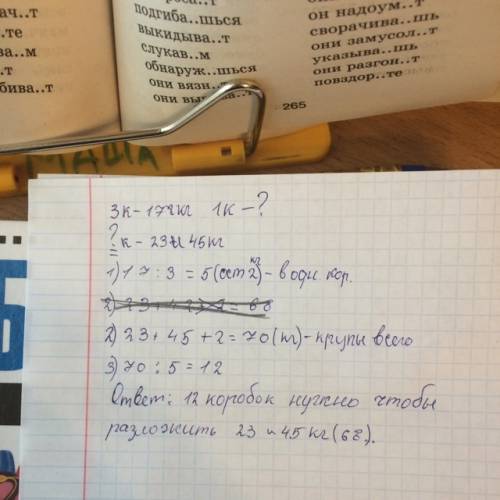 подгиба..шься
выкидыва..т
слукав..м
обнаруж..шься
они вязн..т
он надоум..т
сворачива..шь
они замусол..т
указыва..шь
они разгон..т
повздор..те
265
МАША
3к-17кг 1к-?
?к-23и 45кг
1) 17:3=5(ост 2кг)-в одн. кор.
2) 23+45+2=70(кг)-крупы всего
3) 70:5=12
Ответ: 12 коробок нужно чтобы
разложить 23 и 45 кг(68).